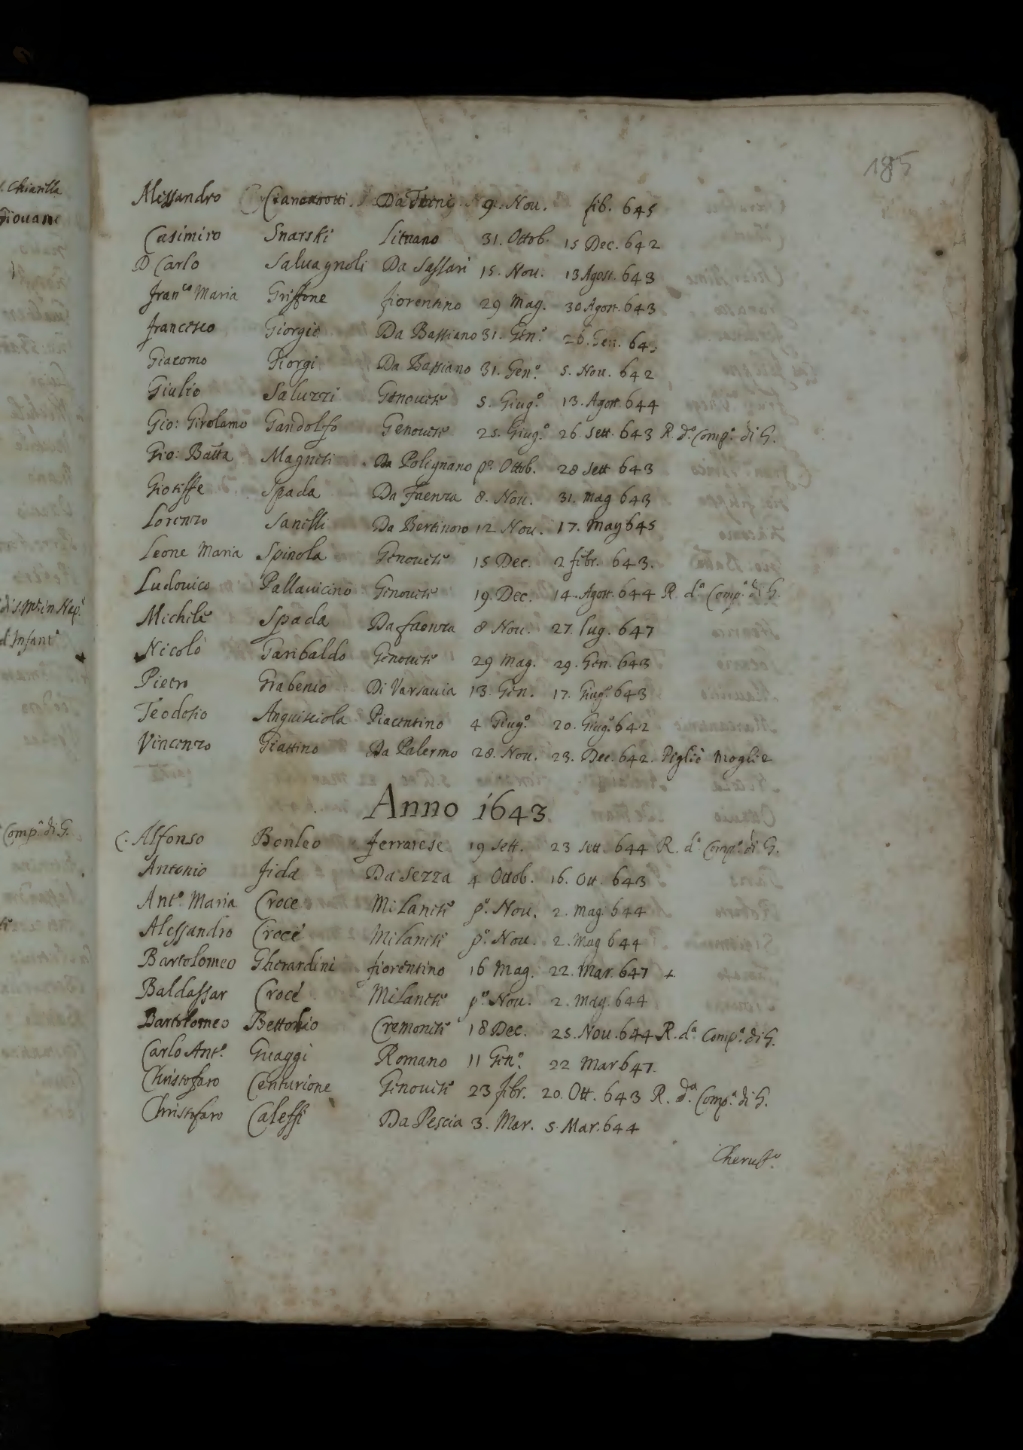 185
Alessandro Da Terni 9. Nou. feb. 645
Casimiro Snarski Lituano 31. Ottob. 15 Dec. 642
D Carlo Saluagnoli Da Sassari 15. Nou. 13 Agost. 643
Fran.co Maria Griffone fiorentino 29 Mag. 30 Agost. 643
francesco Giorgio Da Bassiano 31. Gen.o 26. Gen. 64
Giacomo Giorgi Da Bassiano 31. Gen.o 5. Nou. 642
Giulio Saluzzi Genouese 5. Giug.o 13. Agost. 644
Gio: Girolamo Gandolfo Genouese 25. Giug.o 26 Sett. 643 R. d.a Comp.a di G.
Gio: Batta Magneti Da Polignano p.o Ottob. 28 Sett 643
Gioseffe Spada Da Faenza 8. Nou. 31. mag 643
Lorenzo Sanelli Da Bertinoro 12. Nou. 17. mag 645
Leone Maria Spinola Genouese 15 Dec. 2 febr. 643.
Ludouico Pallauicino Genouese 19. Dec. 14. Agost. 644 R. d.a Comp.a di G.
Michele Spada Da faenza 8 Nou. 27 lug. 647
Nicolò Garibaldo Genouese 29 mag. 29. Gen. 643
Pietro Grabenio Di Varsauia 13 Gen. 17. Giug.o 643
Teodosio Anguisciola Piacentino 4 Giug.o 20. Giug.o 642
Vincenzo Giattino Da Palermo 28. Nou. 23. Dec. 642. Pigliò moglie
Anno 1643
C. Alfonso Bonleo ferrarese 19 Sett. 23 Sett. 644 R. d.a Comp.a di G.
Antonio fida Da Sezza 4 Ottob. 16. Ott 643
Ant.o Maria Croce Milanese p.o Nou. 2. mag 644
Alessandro Croce Milanese p.o Nou. 2. Mag 644
Bartolomeo Gherardini fiorentino 16 Mag. 22. Mar. 647 +
Baldassar Croce Milanese p.o Nou. 2. mag. 644
Bartolomeo Bettonio Cremonese 18 Dec. 25. Nou. 644 R. d.a Comp.a di G.
Carlo Ant.o Guaggi Romano 11 Gen.o 22 Mar 647.
Christofaro Centurione Genouese 23 febr. 20. Ott. 643 R. d.a Comp.a di G.
Christofaro Caleffi Da Pescia 3. Mar. 5. Mar. 644